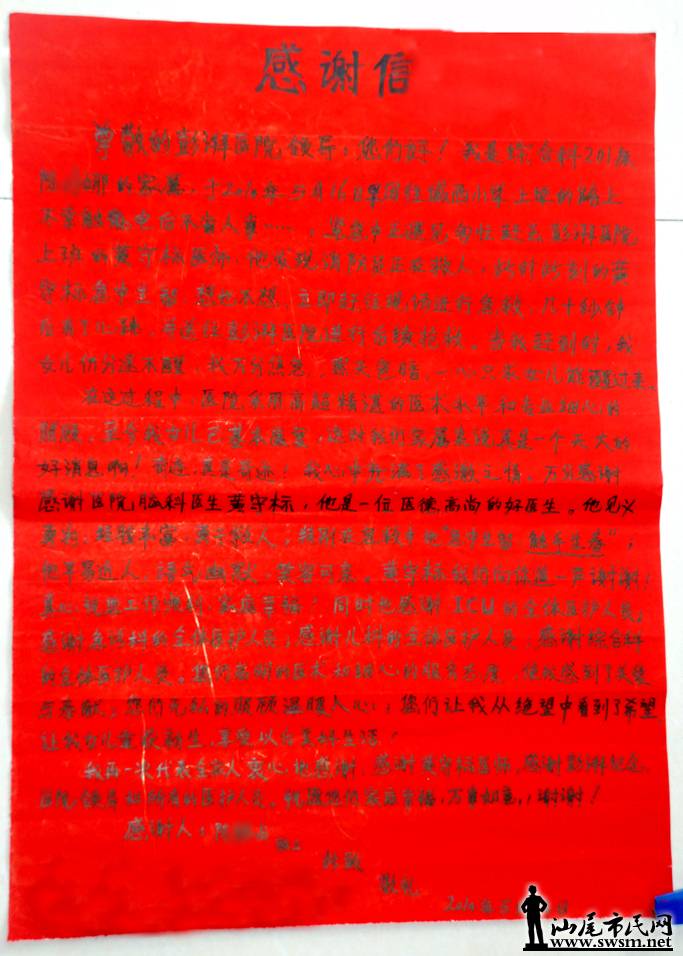 感谢信
尊敬的彭湃医院领导：您们好！我是综合科201床
陈 娜的家属，于2010年5月16日早
不幸触电后不省人事……，
上班的黄守标医师，他发现消防员正在救人，此时此刻的黄
守标急中生智，想也不想，立即赶往现场进行急救，几十秒钟
后有了心跳，并送往彭湃医院进行后续抢救。当我赶到时，我
女儿仍昏迷不醒，我万分焦急，一心只求女儿能醒过来。
在这过程中，医院采用高超精湛的医术水平和
照顾，至今我女儿已基本康复，这对我们家属来说真是一个天大的
好消息啊！奇迹，真是奇迹！我心中充满了感激之情。万分感谢
感谢医院脑科医生黄守标，他是一位医德高尚的好医生。他见义
勇为，经验丰富，勇于救人，特别在急救中他“急中生智 触手生春”，
他平易近人，语言幽默，笑容可亲。黄守标我们向你道一声谢谢！
真心祝愿工作顺利，家庭幸福！同时也感谢ICU的全体医护人员，
感谢急诊科的全体医护人员；感谢儿科的全体医护人员；感谢综合科
的全体医护人员。您们高明的医术和细心的服务态度，使我感到了关爱
与奉献。您们无私的照顾温暖人心；您们让我从绝望中看到了希望
让我女儿重获新生，享受以后美好生活！
我再一次代表全家人衷心地感谢，感谢黄守标医师，感谢彭湃纪念
医院领导和所有的医护人员。祝愿他们家庭幸福，万事如意，谢谢！
感谢人：陈
此致
敬礼
2010年5月 日
汕尾市民网
www.swsm.net